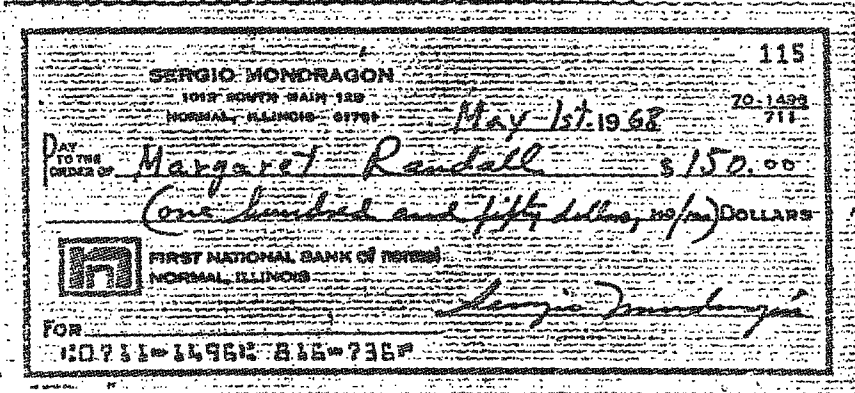 115
SERGIO MONDRAGON
1012 SOUTH MAIN 12B
NORMAL, ILLINOIS 61761
May 1st 1968
70-1496
711
PAY TO THE ORDER OF Margaret Randall $ 150.00
(one hundred and fifty dollars, no/oo) DOLLARS
FIRST NATIONAL BANK of normal
NORMAL, ILLINOIS
Sergio Mondragón
FOR
⑆0711⑉1496⑆ 816⑉736⑈